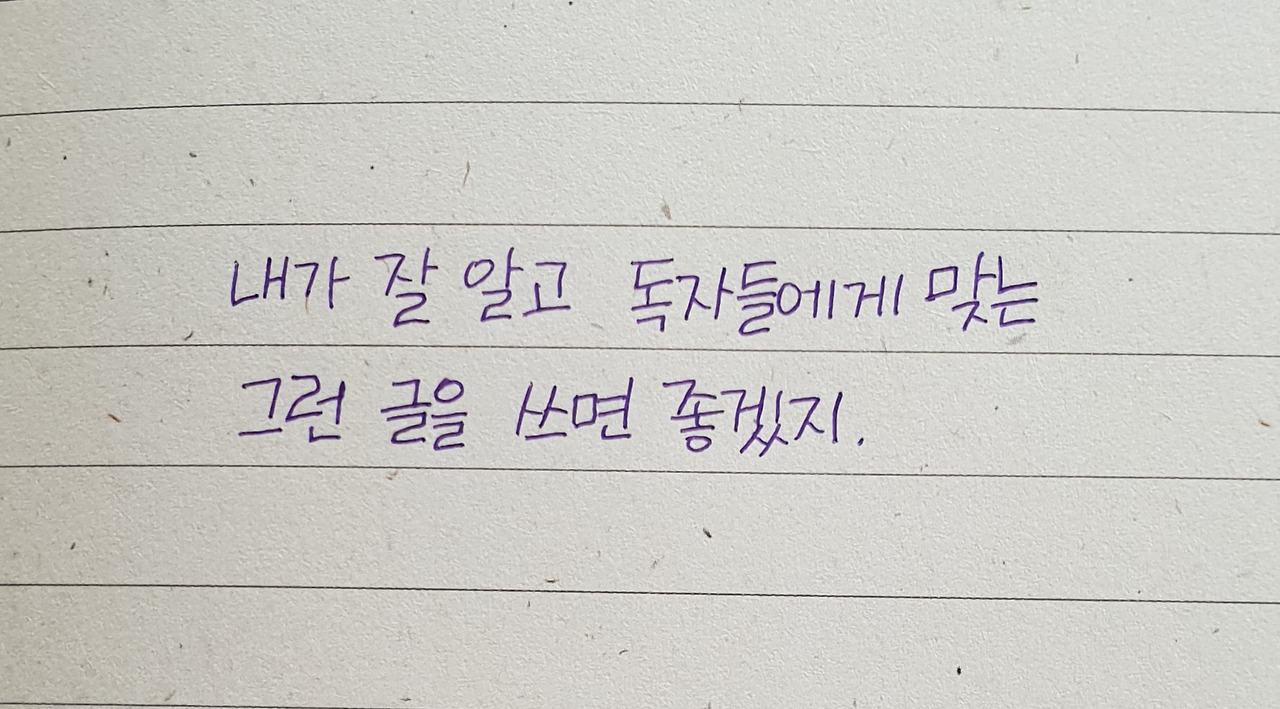 내가 잘 알고 독자들에게 맞는
그런 글을 쓰면 좋겠지.